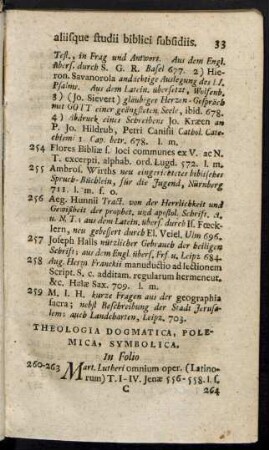 aliisque studii biblici subsidiis. 33
Test., in Frag und Antwort. Aus dem Engl.
übers. durch S. G. R. Basel 677. 2) Hie-
ron. Savanorola andächtige Auslegung des 51.
Psalms. Aus dem Latein. übersetzt, Weisenb.
3) (Jo. Sievert) gläubiger Hertzen-Gespräch
mit GOTT einer geängsteten Seele, ibid. 678.
4) Abdruck eines Schreibens Jo. Kræen an
P. Jo. Hildrub, Petri Canisii Cathol. Cate-
chism: 1 Cap. betr. 678. l. m.
254 Flores Bibliæ s. loci communes ex V. ac N.
T. excerpti, alphab. ord. Lugd. 572. l. m.
255 Ambros. Wirths neu eingerichtetes biblisches
Spruch-Büchlein, für die Jugend, Nürnberg
711. l. m. f. o.
256 Aeg. Hunnii Tract. von der Herrlichkeit und
Gewißheit der prophet. und apostol. Schrift. A.
u. N. T. aus dem Latein. übers. durch If. Freck-
lern, neu gebessert durch El. Veiel. Ulm 696.
257 Joseph Halls nützlicher Gebrauch der heiligen
Schrift; aus dem Engl. übers. Frf. u. Leipz. 684.
258 Aug. Herm Franckii manuductio ad lectionem
Script. S. c. additam. regularum hermeneut.
&c. Halæ Sax. 709. l. m.
259 M. I. H. kurze Fragen aus der geographia
sacra; nebst Beschreibung der Stadt Jerusa-
lem: auch Landcharten, Leipz. 703.
THEOLOGIA DOGMATICA, POLE-
MICA, SYMBOLICA.
In Folio
260-263 Mart. Lutheri omnium oper. (Latino-
rum) T. I-IV. Jenæ 556-558. l. f.
C 264